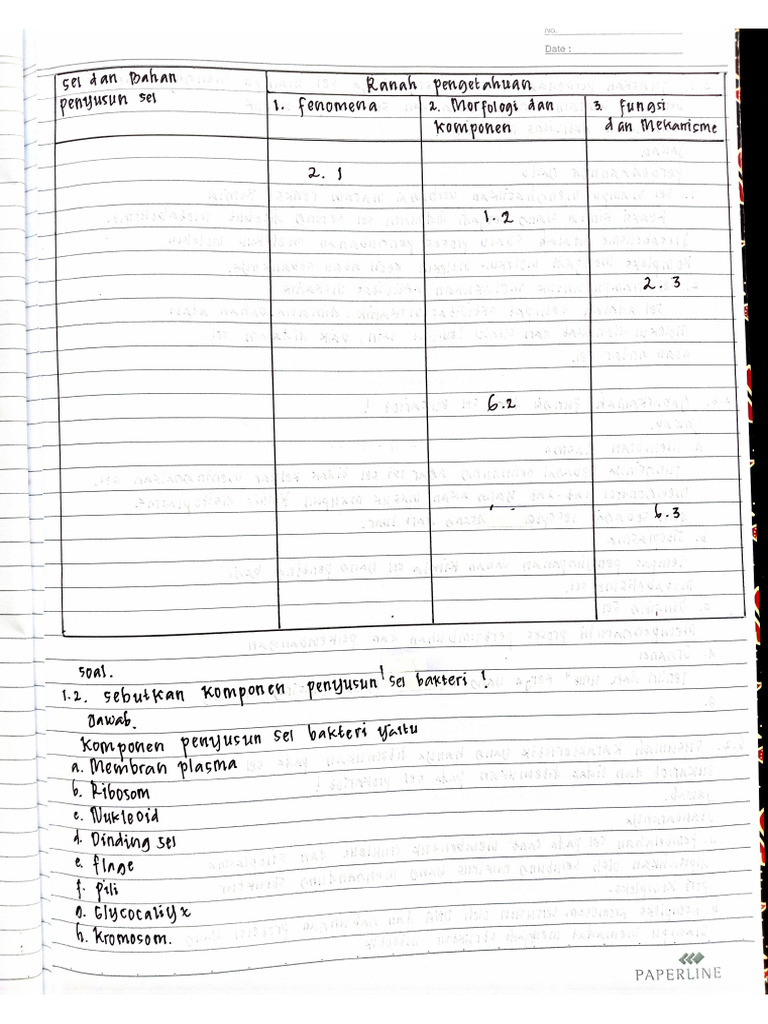 No.
Date :
sel dan Bahan
penyusun sel
Ranah pengetahuan
1. fenomena
2. Morfologi dan
komponen
3. fungsi
dan Mekanisme
2. 1
1. 2
2. 3
6.2
6.3
soal.
1.2. sebutkan komponen penyusun sel bakteri !
Jawab.
komponen penyusun sel bakteri yaitu
a. Membran plasma
b. Ribosom
c. Nukleoid
d. Dinding sel
e. flage
f. pili
g. Glycocaliyx
h. kromosom.
PAPERLINE